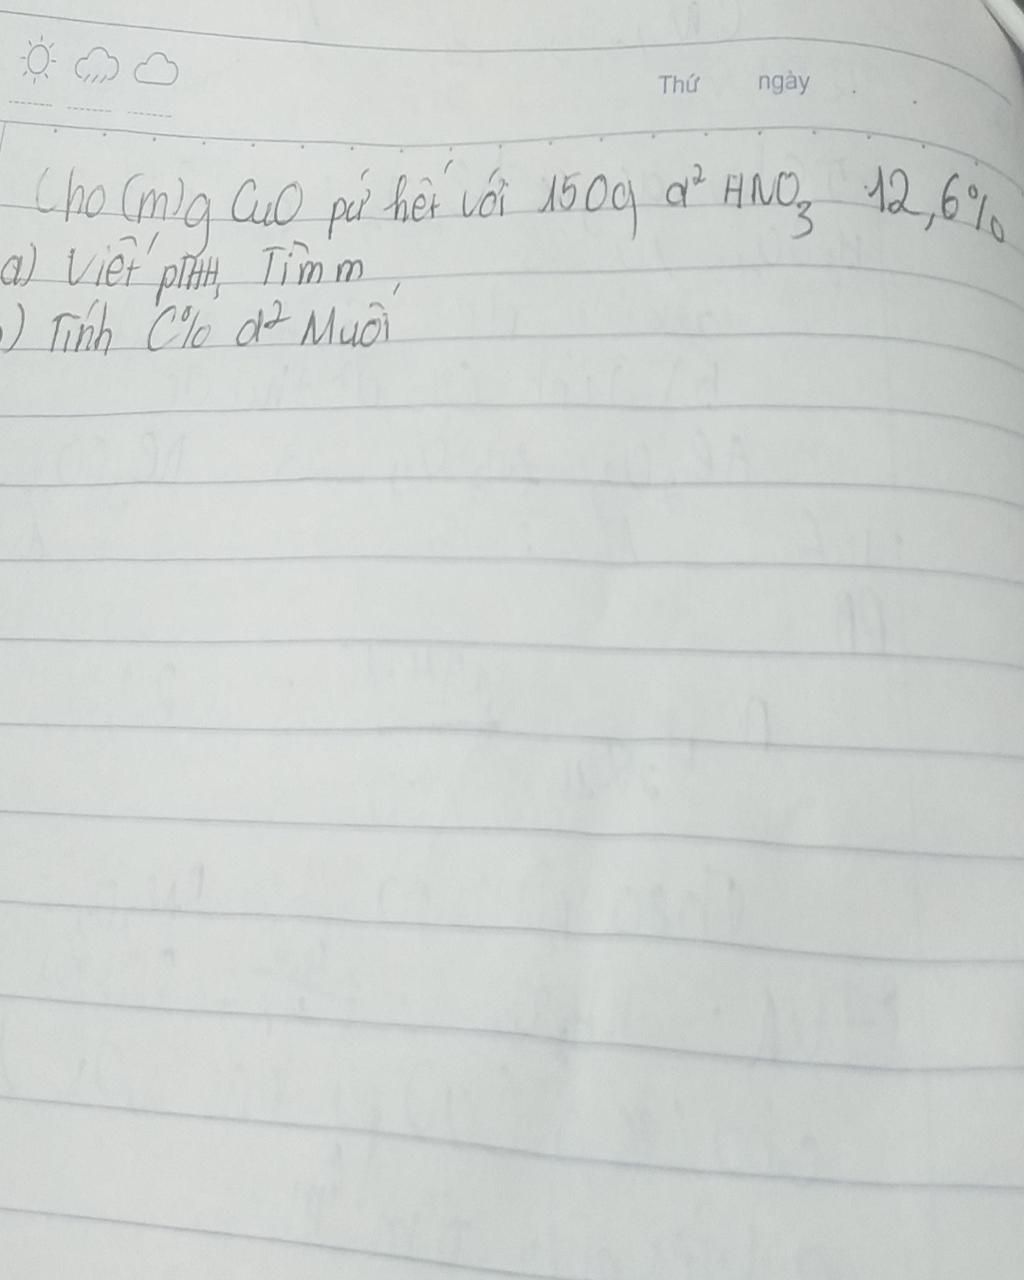 Thứ ngày
Cho (m)g CuO pứ hết với 150g d² HNO₃ 12,6%
a) Viết PTHH, Tìm m
) Tính C% d² Muối